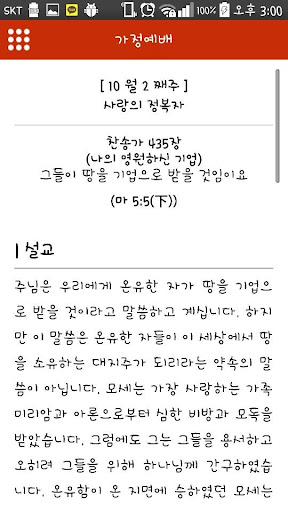 SKT 100% 오후 3:00
가정예배
[ 10 월 2 째주 ]
사랑의 정복자
찬송가 435장
(나의 영원하신 기업)
그들이 땅을 기업으로 받을 것임이요
(마 5:5(下))
설교
주님은 우리에게 온유한 자가 땅을 기업으
로 받을 것이라고 말씀하고 계십니다. 하지
만 이 말씀은 온유한 자들이 이 세상에서 땅
을 소유하는 대지주가 되리라는 약속의 말
씀이 아닙니다. 모세는 가장 사랑하는 가족
미리암과 아론으로부터 심한 비방과 모독을
받았습니다. 그럼에도 그는 그들을 용서하고
오히려 그들을 위해 하나님께 간구하였습니
다. 온유함이 온 지면에 승하였던 모세는